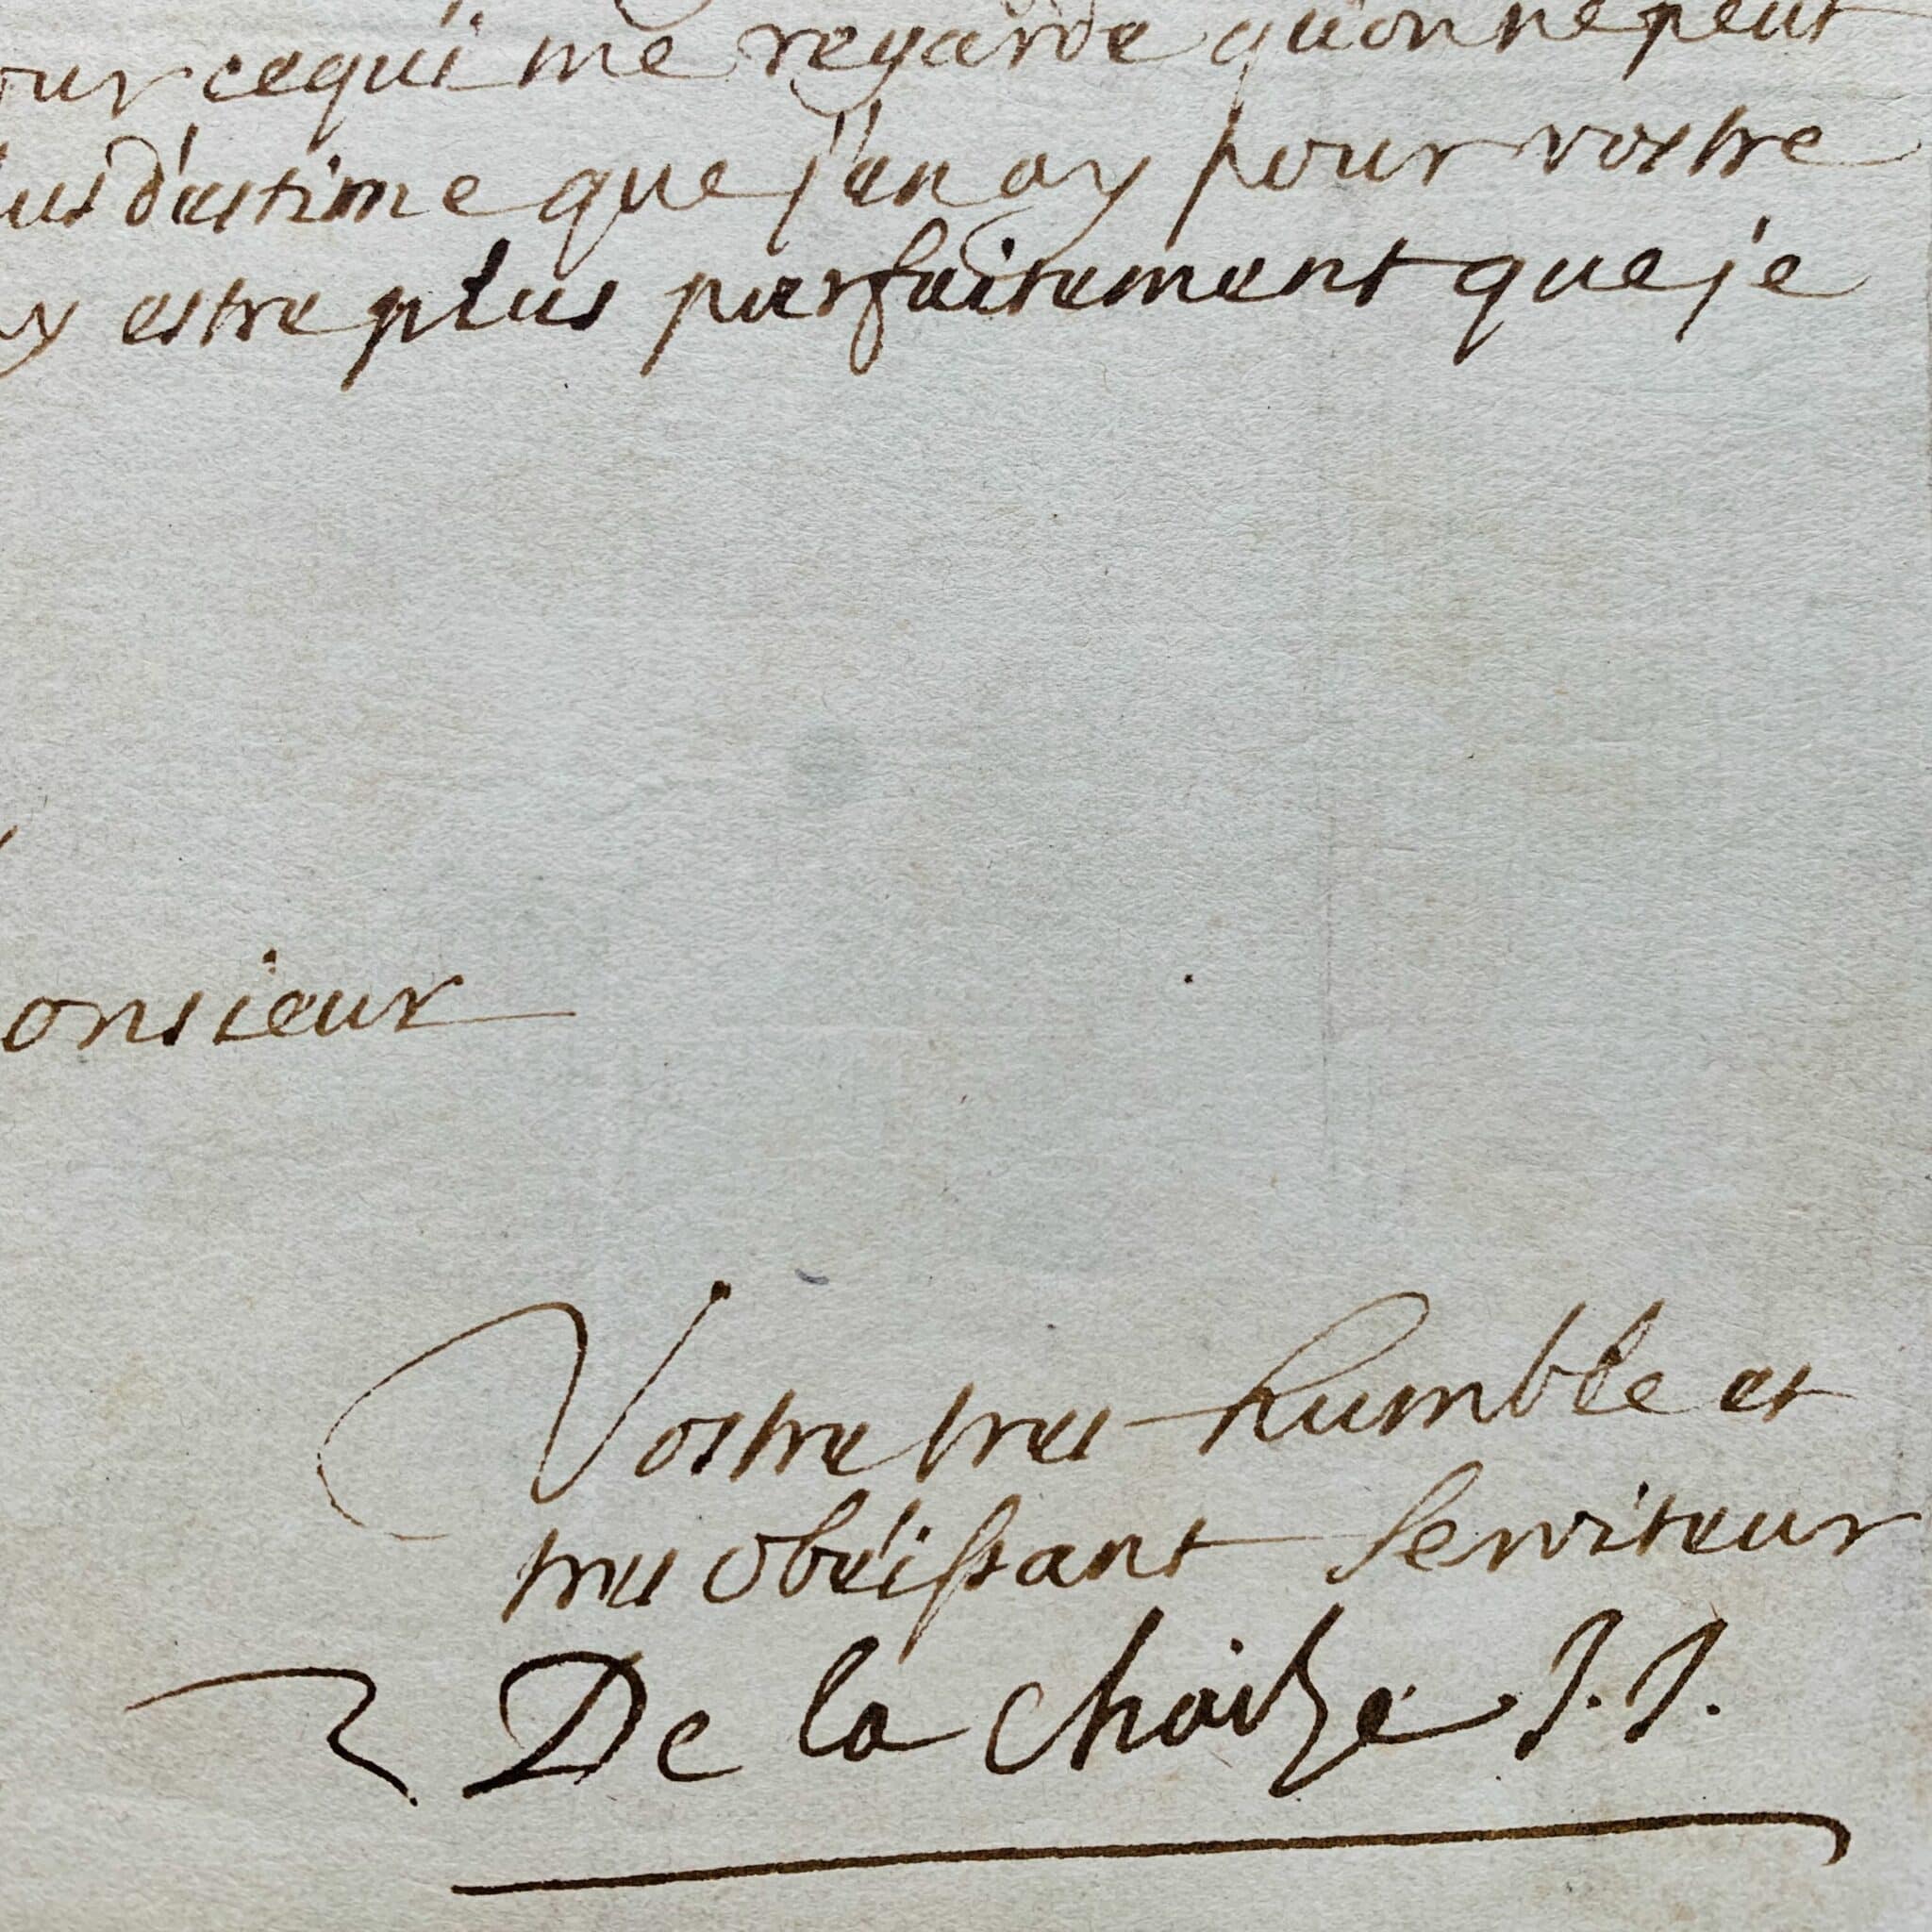 our cequi me regarde qu'on ne peut
lus d'estime que j'en ay pour vostre
y estre plus parfaitement que je
onsieur
Vostre tres humble et
tres obéissant Serviteur
De la Chaize J. J.